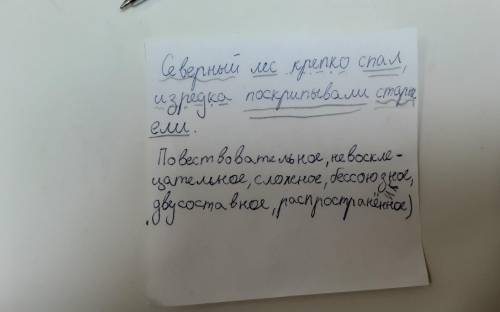 Северный лес крепко спал,
изредка поскрипывали стары
ели.
Повествовательное, невоскле-
цательное, сложное, бессоюзное,
двусоставное, распространённое)